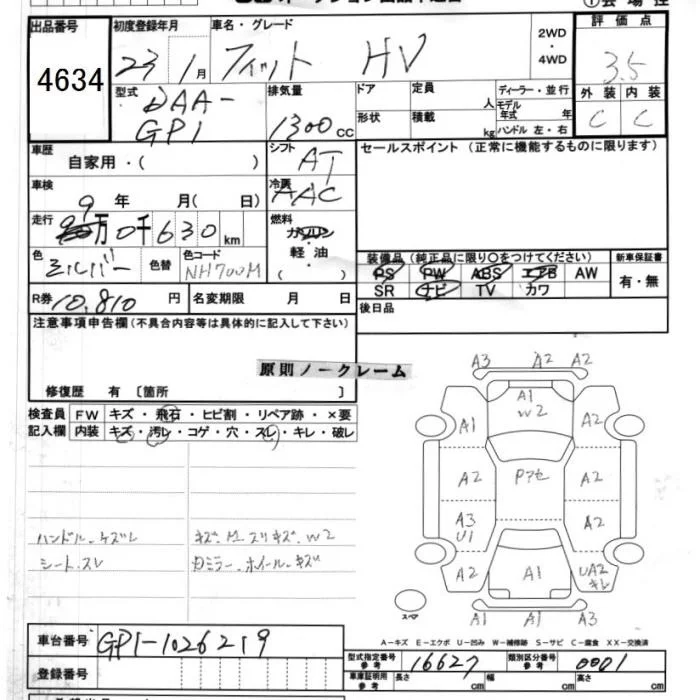 出品番号 初度登録年月 車名・グレード 2WD・4WD 評価点
4634 23 1月 フィット HV 3.5
型式 DAA-GP1 排気量 1300cc
ドア 定員 人 ディーラー・並行
形状 積載 kg モデル年式 年 ハンドル 左・右
外装 内装
C C
車歴 自家用・( ) シフト AT
セールスポイント (正常に機能するものに限ります)
車検 9年 月( 日) 冷房 AAC
走行 万 0千 630 km 燃料 ガソリン 軽油
色 シルバー 色替 色コード NH700M
装備品 (純正品に限り〇をつけてください) 新車保証書
PS PW ABS エアB AW 有・無
SR ナビ TV カワ
R券 10,810円 名変期限 月 日
後日品
注意事項申告欄 (不具合内容等は具体的に記入して下さい)
原則ノークレーム
修復歴 有 〔箇所 〕
検査員 FW キズ・飛石・ヒビ割・リペア跡・×要
記入欄 内装 キズ・汚レ・コゲ・穴・スレ・キレ・破レ
A3 A2 A2
A1
W2
A1 A2
A2 Pアセ A2
A3 U1 A2
A2 A1 UA2 キレ
A1 A1 A3
スペア
ハンドル・ケズレ キズ、M.スリキズ、W2
シート・スレ カミラー・ホイール・キズ
A-キズ E-エクボ U-凹み W-補修跡 S-サビ C-腐食 XX-交換済
車台番号 GP1-1026219
登録番号
型式指定番号 参考 16627 類別区分番号 参考 0001
車庫証明用 参考 長さ cm 幅 cm 高さ cm